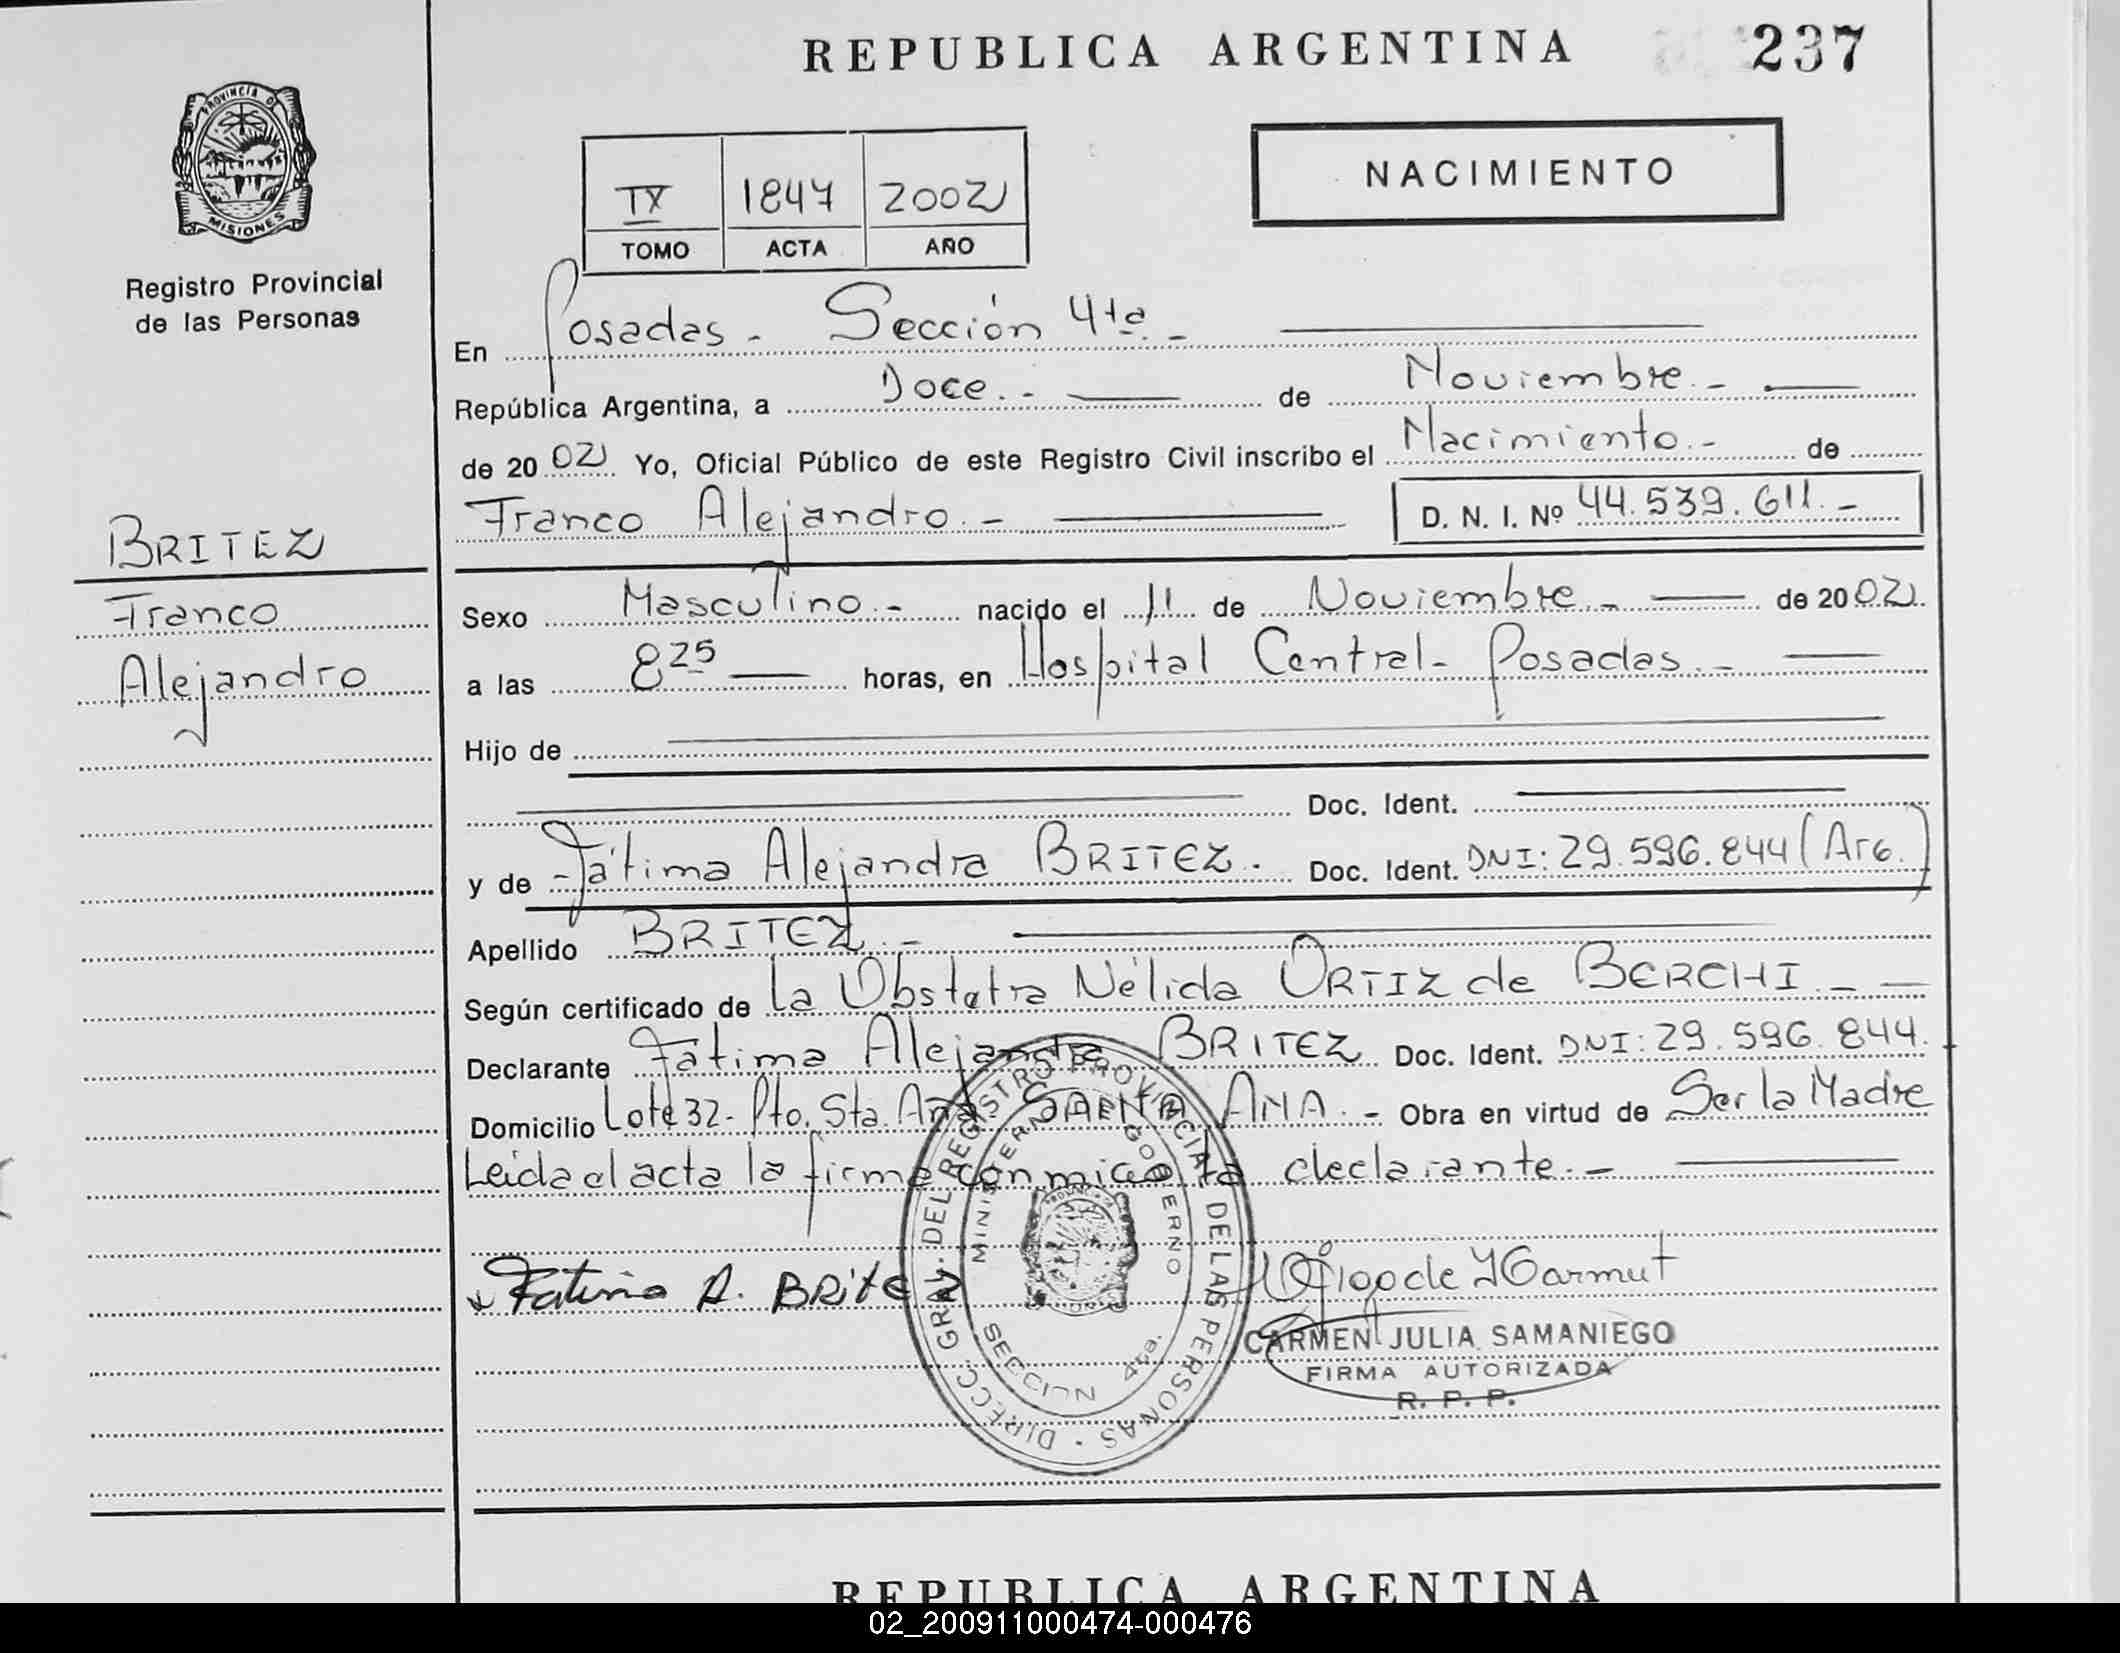 REPUBLICA ARGENTINA
237
PROVINCIA DE
MISIONES
Registro Provincial
de las Personas
NACIMIENTO
IX 1847 2002
TOMO ACTA AÑO
En Posadas - Sección 4ta. -
República Argentina, a Doce. - de Noviembre. -
de 2002 Yo, Oficial Público de este Registro Civil inscribo el Nacimiento. - de
Franco Alejandro. - D. N. I. Nº 44.539.611. -
BRITEZ
Franco
Alejandro
Sexo Masculino. - nacido el 11 de Noviembre. - de 2002.
a las 8 25 horas, en Hospital Central - Posadas. -
Hijo de
Doc. Ident.
y de Fátima Alejandra BRITEZ. Doc. Ident. DNI: 29.596.844 (Arg.)
Apellido BRITEZ. -
Según certificado de la Obstetra Nélida ORTIZ de BERCHI. -
Declarante Fátima Alejandra BRITEZ Doc. Ident. DNI: 29.596.844.
Domicilio Lote 32 - Pto. Sta. Ana SANTA ANA. - Obra en virtud de Ser la Madre
Leida el acta la firma conmigo la declarante. -
Fatima A. BRitez
DIRECC. GRAL. DEL REGISTRO PROVINCIAL DE LAS PERSONAS
MINISTERIO GOBIERNO
SECCION 4ta.
CARMEN JULIA SAMANIEGO
FIRMA AUTORIZADA
R. P. P.
REPUBLICA ARGENTINA
02_200911000474-000476